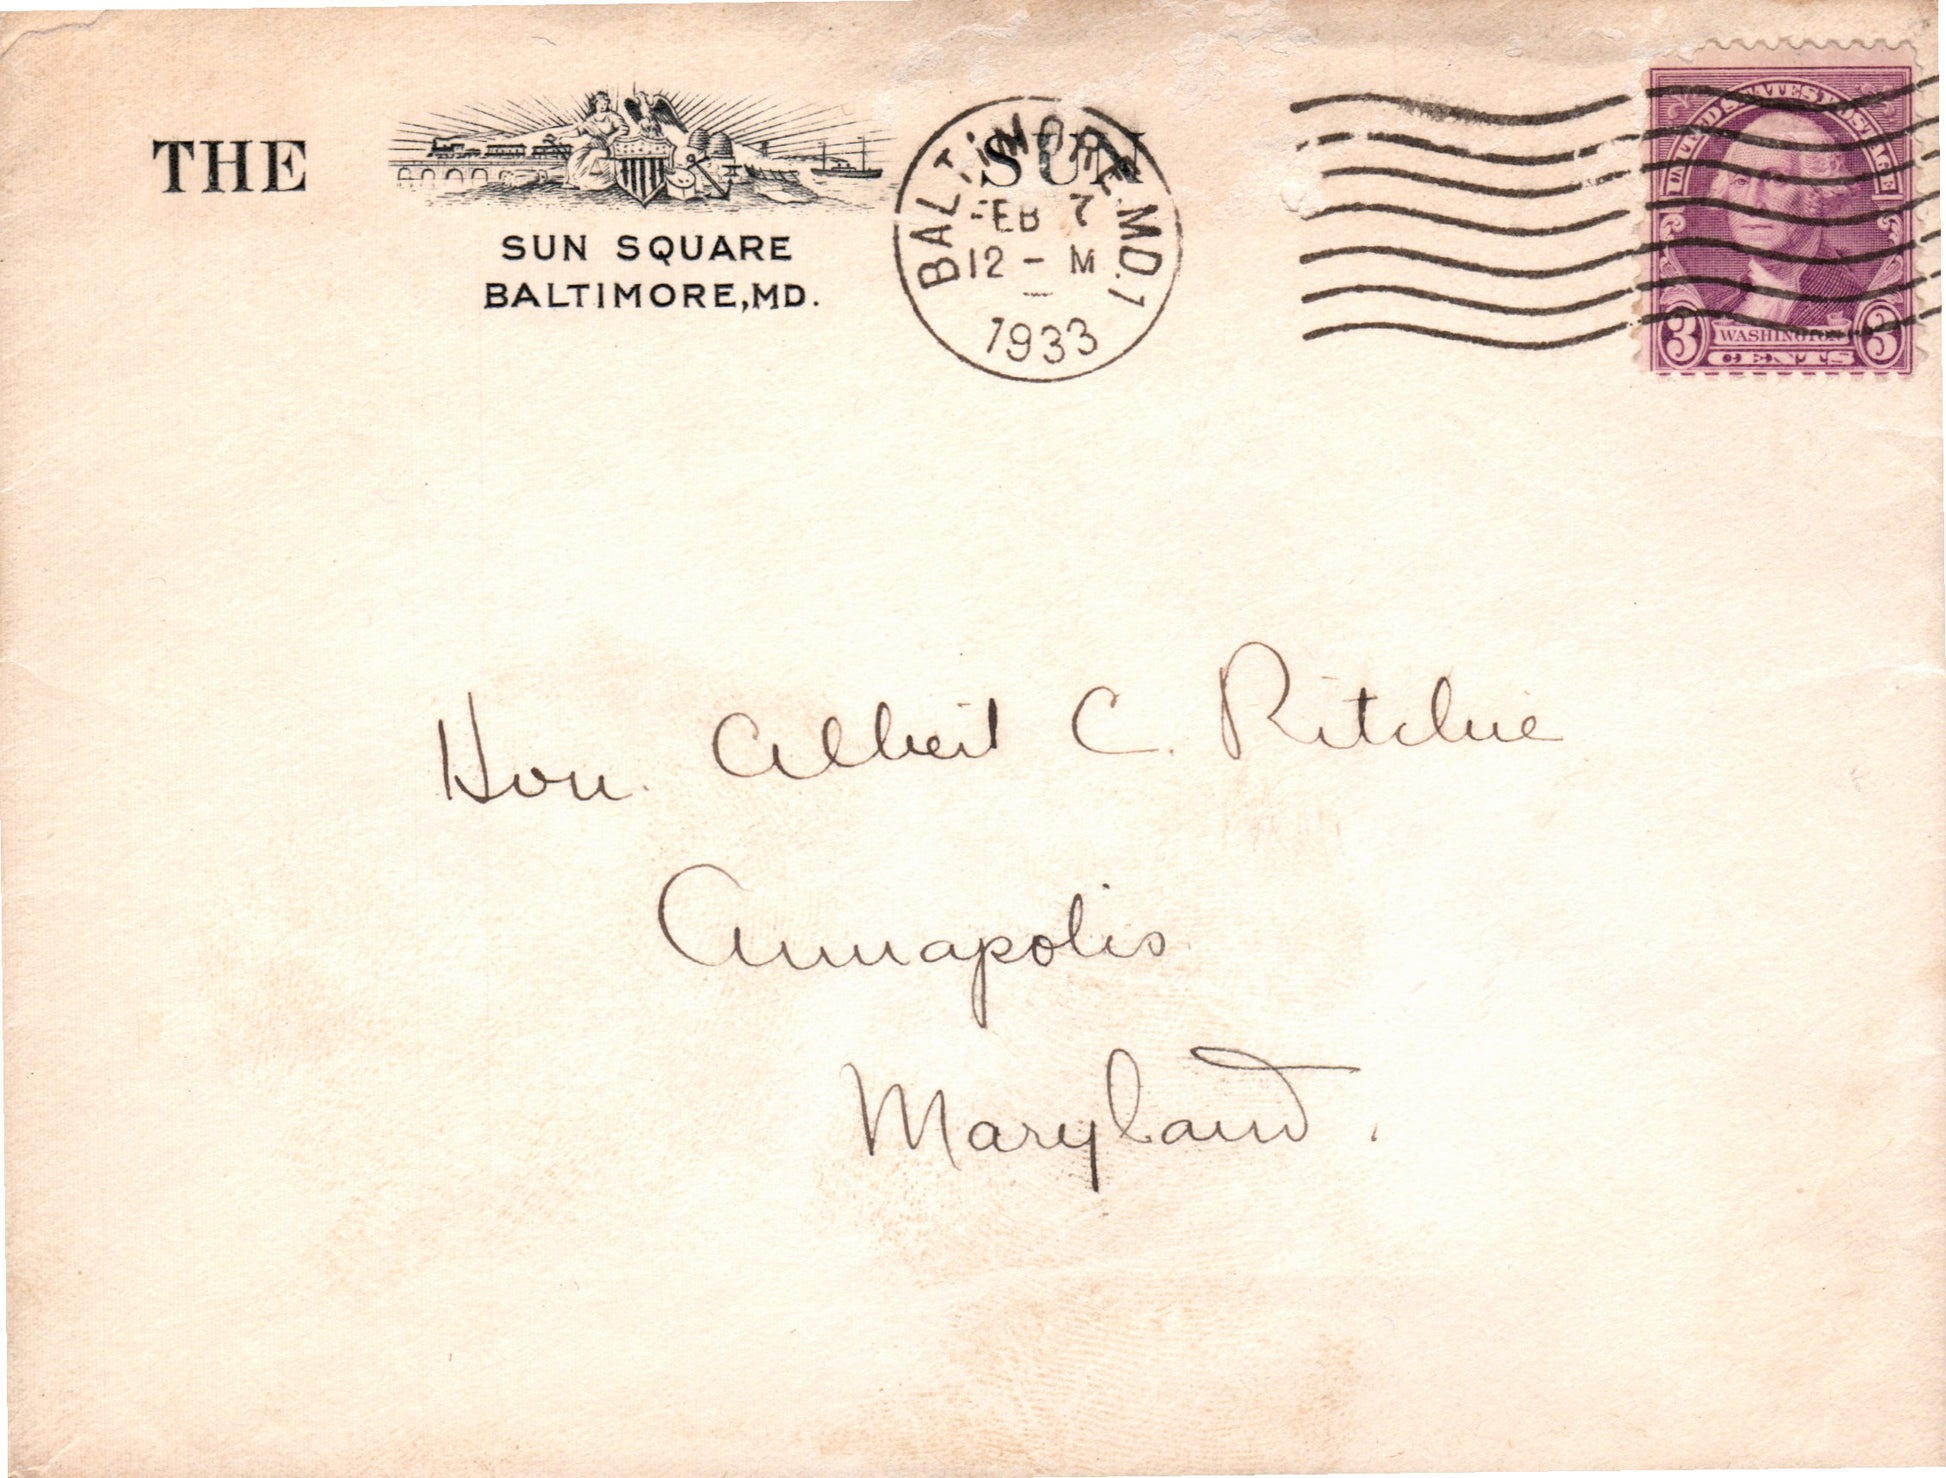 THE SUN
SUN SQUARE
BALTIMORE, MD.
BALTIMORE, MD. 1
FEB 7
12 - M
1933
UNITED STATES POSTAGE
3 WASHINGTON 3
CENTS
Hon. Albert C. Ritchie
Annapolis
Maryland.